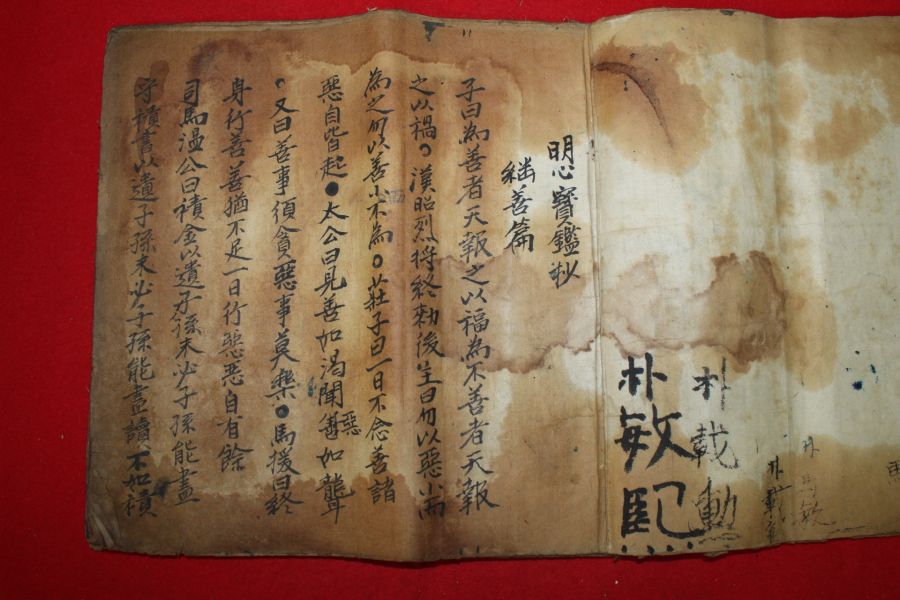 朴載勳
朴敏
明心寶鑑抄
継善篇
子曰為善者天報之以福為不善者天報
之以禍○漢昭烈將終勅後主曰勿以惡小而
為之勿以善小不為○莊子曰一日不念善諸
惡自皆起●太公曰見善如渴聞惡如聾
○又曰善事須貪惡事莫樂○馬援曰終
身行善善猶不足一日行惡惡自有餘
司馬溫公曰積金以遺子孫未必子孫能盡
守積書以遺子孫未必子孫能盡讀不如積